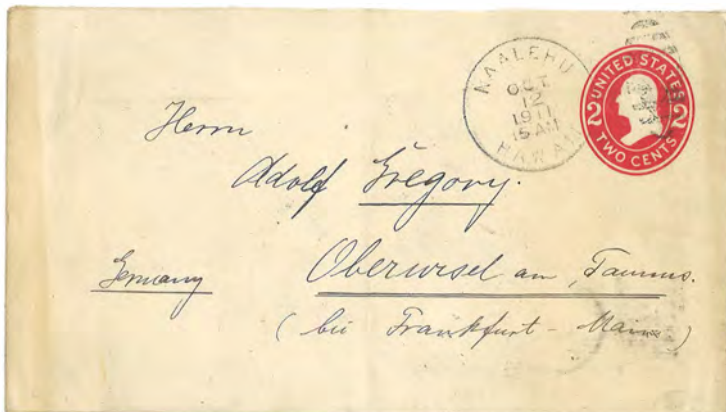 NAALEHU
OCT
12
1911
5 AM
HAWAII
UNITED STATES
2 2
TWO CENTS
Herrn
Adolf Gregory.
Oberursel am Taunus.
Germany
(bei Frankfurt - Main)